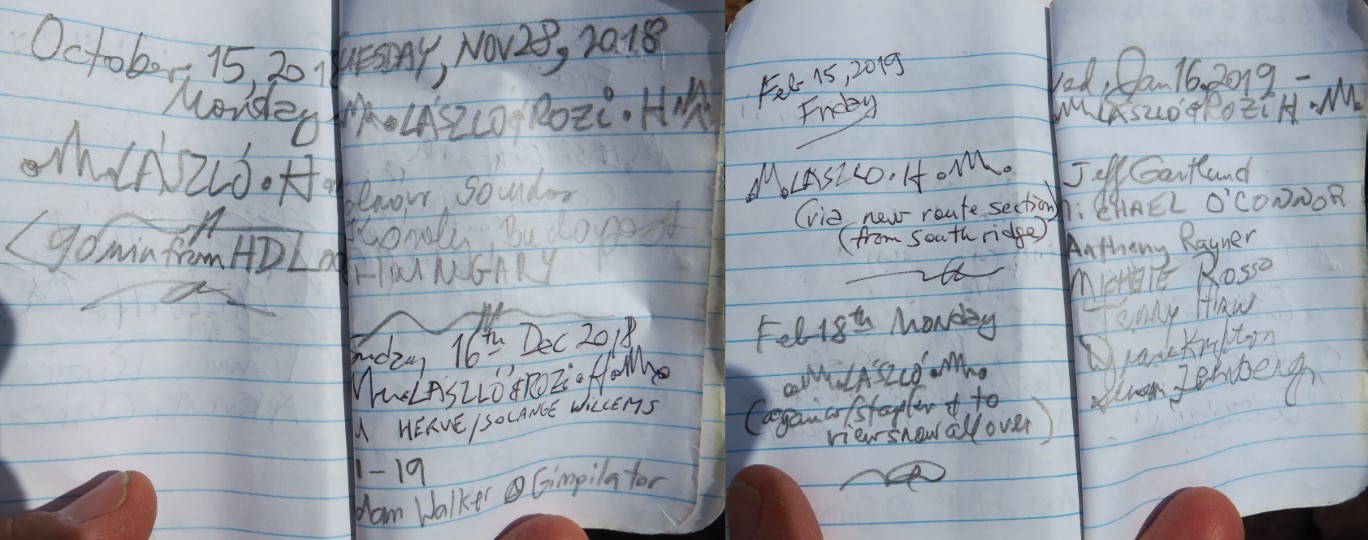 October, 15, 2018
Monday
M. LÁSZLÓ • H •
(90min from HDL
UESDAY, NOV 28, 2018
M. LÁSZLÓ & ROZI • H M.
Sándor
Budapest
HUNGARY
16th Dec 2018
M. LÁSZLÓ & ROZI • H • M.
HERVE/SOLANGE WILLEMS
1-19
dam Walker @ Gimpilator
Feb 15, 2019
Friday
M. LÁSZLÓ • H • M.
(via new route section)
(from south ridge)
Feb 18th Monday
M. LÁSZLÓ • M.
to
view snow all over)
ed, Jan 16, 2019 -
M. LÁSZLÓ & ROZI H • M.
Jeff Gartland
MiCHAEL O'CONNOR
Anthony Rayner
MICHELE ROSSO